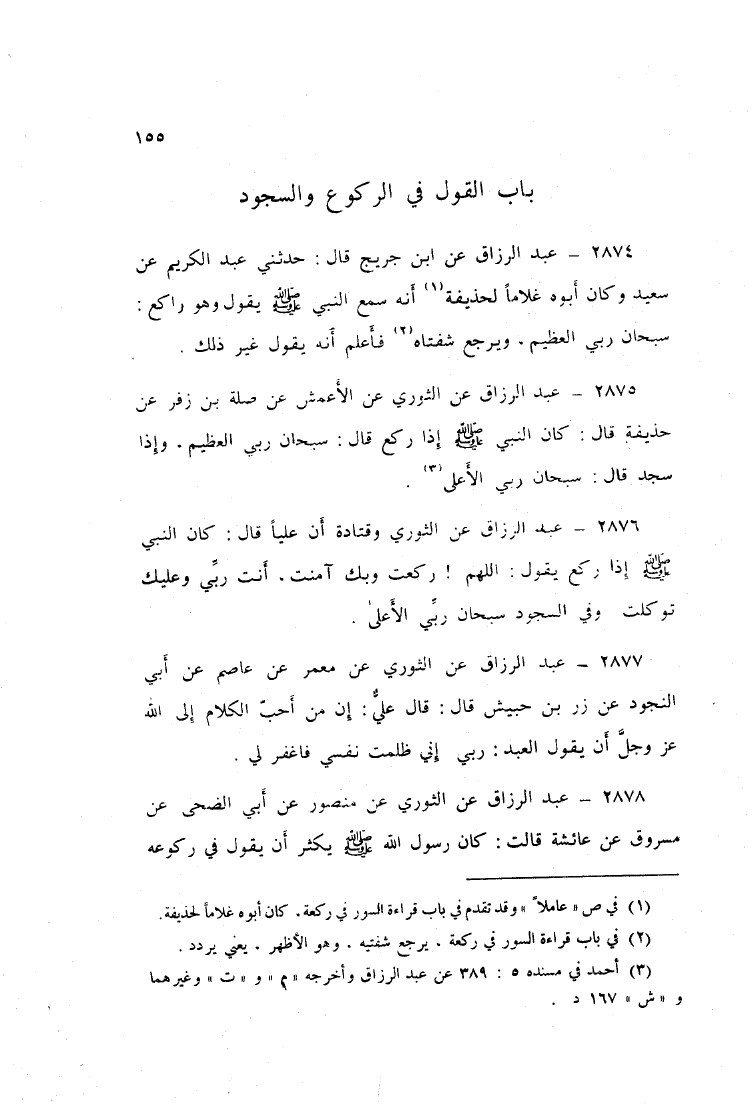 ١٥٥
باب القول في الركوع والسجود
٢٨٧٤ – عبد الرزاق عن ابن جريج قال : حدثني عبد الكريم عن
سعيد وكان أبوه غلاماً لحذيفة(١) أنه سمع النبي ﷺ يقول وهو راكع :
سبحان ربي العظيم . ويرجع شفتاه(٢) فأعلم أنه يقول غير ذلك .
٢٨٧٥ – عبد الرزاق عن الثوري عن الأعمش عن صلة بن زفر عن
حذيفة قال : كان النبي ﷺ إذا ركع قال : سبحان ربي العظيم . وإذا
سجد قال : سبحان ربي الأعلى(٣) .
٢٨٧٦ – عبد الرزاق عن الثوري وقتادة أن علياً قال : كان النبي
ﷺ إذا ركع يقول : اللهم ! ركعت وبك آمنت . أنت ربِّي وعليك
توكلت وفي السجود سبحان ربِّي الأعلىٰ .
٢٨٧٧ – عبد الرزاق عن الثوري عن معمر عن عاصم عن أبي
النجود عن زر بن حبيش قال : قال عليٌّ : إن من أحبّ الكلام إلى الله
عز وجلَّ أن يقول العبد : ربي إني ظلمت نفسي فاغفر لي .
٢٨٧٨ – عبد الرزاق عن الثوري عن منصور عن أبي الضحى عن
مسروق عن عائشة قالت : كان رسول الله ﷺ يكثر أن يقول في ركوعه
(١) في ص « عاملاً » وقد تقدم في باب قراءة السور في ركعة . كان أبوه غلاماً لحذيفة .
(٢) في باب قراءة السور في ركعة . يرجع شفتيه . وهو الأظهر . يعني يردد .
(٣) أحمد في مسنده ٥ : ٣٨٩ عن عبد الرزاق وأخرجه « م » و « ت » وغيرهما
و « ش » ١٦٧ د .